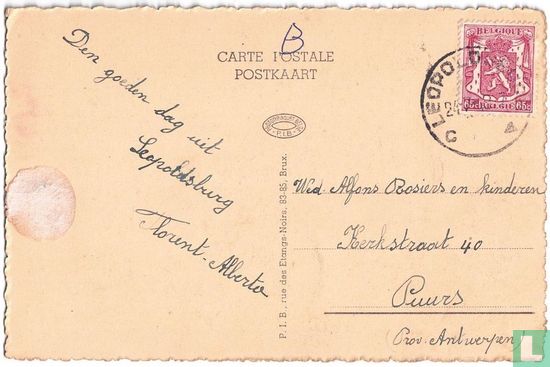 B
CARTE POSTALE
POSTKAART
Den goeden dag uit
Leopoldsburg
Florent-Alberto
P.I.B.
P.I.B., rue des Etangs-Noirs, 83-85, Brux.
BELGIQUE
65c BELGIË 65c
LEOPOLDSBURG
Wed. Alfons Rosiers en kinderen
Kerkstraat 40
Puurs
(Prov. Antwerpen)